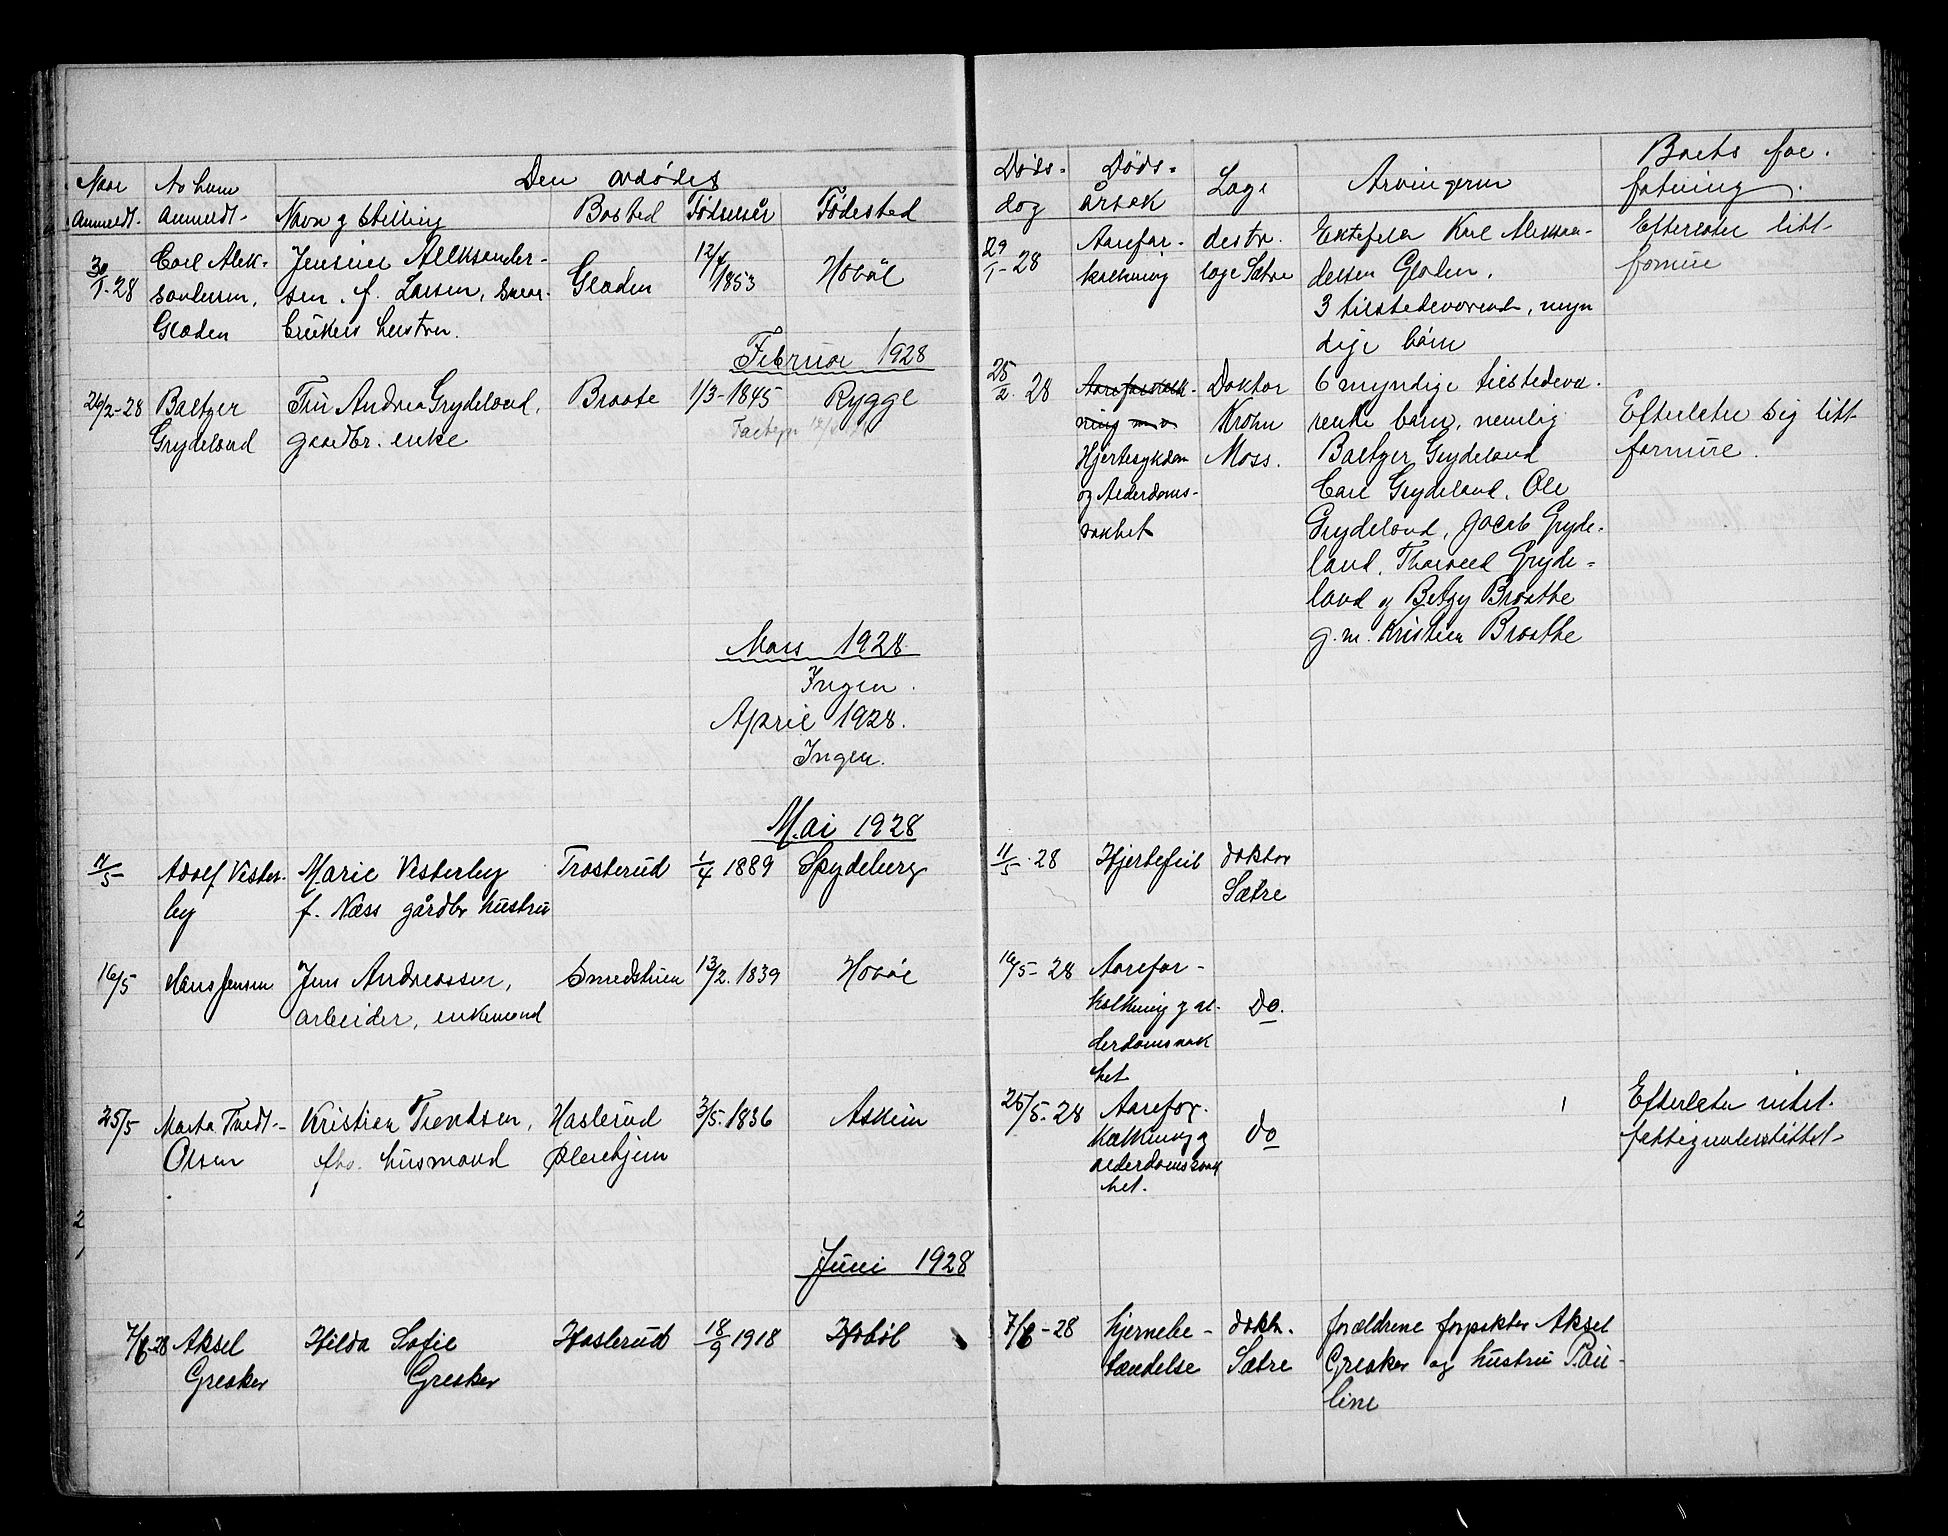 Naar
Anmeldt.
Av hvem
anmeldt
Den avdødes
Navn og Stilling
Bosted
Fødselsår
Fødested
Døds-
dag
Døds-
årsak
Læge
Arvingerne
Boets for-
fatning.
30/1-28
Carl Alek-
sandersen,
Gladen
Jensine Alleksander-
sen, f. Larsen,
brukers hustru.
Gladen
12/4
1853
Hobøl
29/1-28
Aarefor-
kalkning
distr.
læge Sætre
Ektefelle Karl Aleksan-
dersen Gladen.
3 tilstedeværende, myn
dige børn
Efterlater litt
formue
Februar 1928
26/2-28
Baltzer
Grydeland
Fru Andrea Grydeland,
gaardbr. enke
Braate
1/3-1845
Rygge
25/2. 28
Aareforkalk-
ning
Hjertesykdom
og Alderdoms-
svakhet
Doktor
Krohn
Moss.
6 myndige tilstedevæ-
rende børn, nemlig
Baltzer Grydeland
Carl Grydeland, Ole
Grydeland, Jacob Gryde-
land, Thorvald Gryde-
land og Betzy Braathe
g.m. Kristian Braathe
Efterlater sig litt
formue.
Mars 1928
Ingen.
April 1928.
Ingen.
Mai 1928
11/5
Adolf Vester-
by
Marie Vesterby
f. Næss gårdbr hustru
Trosterud
1/4 1889
Spydeberg
11/5. 28
Hjertefeil
doktor
Sætre
16/5
Hans Jensen
Jens Andreassen,
arbeider, enkemand
Smedstuen
13/2. 1839
Hobøl
16/5-28
Aarefor-
kalkning og al-
derdomssvak
het
Do.
25/5
Marta Tvedt-
Olsen
Kristian Trondsen,
fhv. husmand
Haslerud
Pleiehjem
3/5. 1836
Askim
25/5-28
Aarefor-
kalkning og
alderdomssvak
het.
do
Efterlater intet.
fattigunderstøttet
Juni 1928
7/6-28
Aksel
Greaker
Hilda Sofie
Greaker
Haslerud
18/9 1918
Hobøl
7/6-28
hjernebe-
tændelse
doktr.
Sætre
forældrene forpakter Aksel
Greaker og hustru Pau-
line